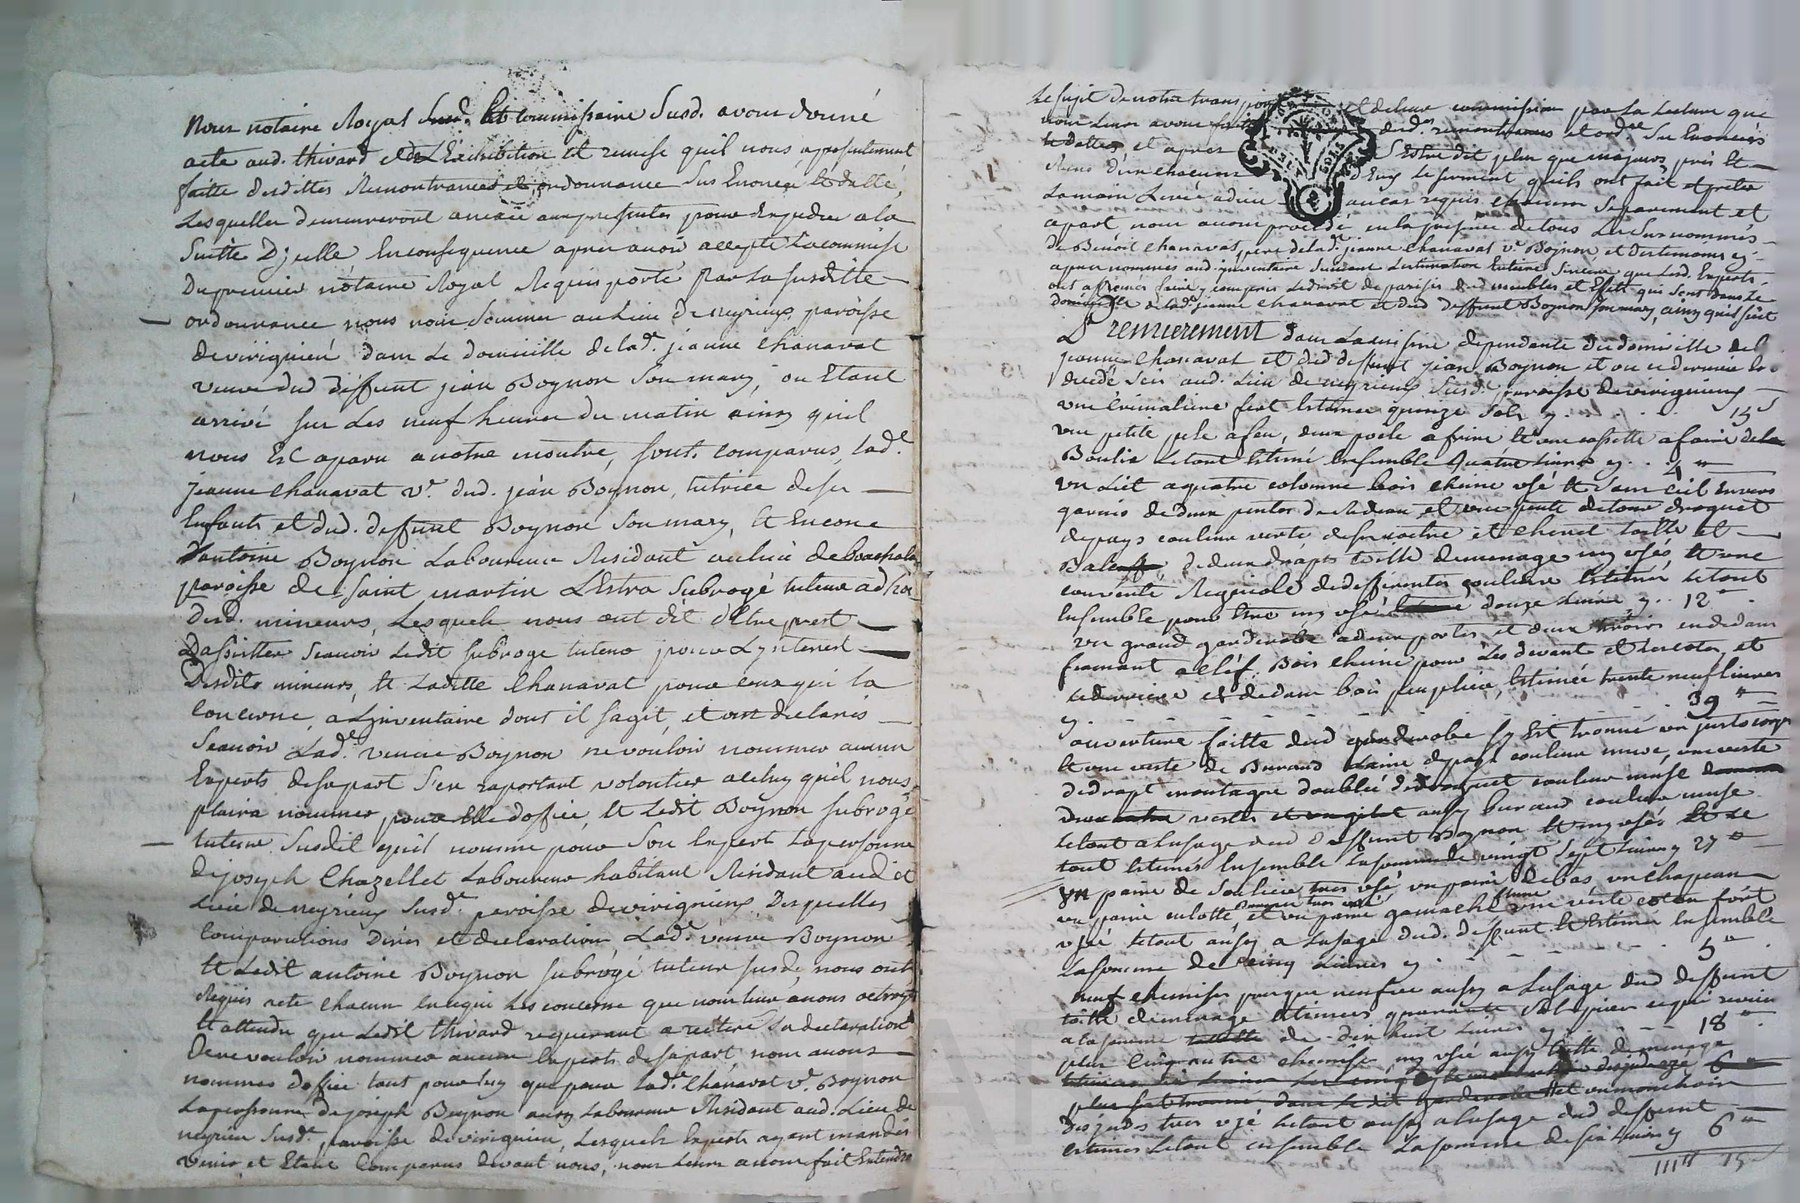 Nous notaire Royal Susd. Et commissaire Susd. avons donné
acte aud. thivard de L'Exhibition Et remise quil nous a presentement
faitte desdittes Remontrances et ordonnance Sus Enoncée Et datté,
Lesquelles demeureront anexée aux presentes pour Expedier a la
Suitte D'jcelle En consequence apres avoir accepté La commise
Du premier notaire Royal Requis porté par La susditte
ordonnance nous nous sommes au Lieu de neyrieux paroisse
de virignieu dans Le domicille de lad. jeanne Chanavat
veuve dud deffunt jean Boynon Son mary, ou Etant
arrivé sur Les neuf heures du matin ainsy quil
nous Est aparu a notre montre, sont comparus, lad.e
jeanne Chanavat v.e dud. jean Boynon, tutrice de ses
Enfants et dud. deffunt Boynon Son mary, Et Encore
d'antoine Boynon Laboureur Residant au lieu de
paroisse de Saint martin L'Estra Subrogé tuteur
desd. mineurs, Lesquels nous ont dit d'Etre prest
Dassister Scavoir Ledit subrogé tuteur pour L'jnterest
Desdits mineurs, Et Laditte Chanavat pour ceux qui la
Concerne, a L'jnventaire dont il sagit et ont declarés
Scavoir Lad.e veuve Boynon ne vouloir nommer aucun
Experts de sa part S'en raportant volontier a celuy qu'il nous
plaira nommer pour Elle d'ofice, Et Ledit Boynon subrogé
tuteur Susdit qu'il nomme pour Son Expert La personne
de joseph Chazellet Laboureur habitant Residant aud it
Lieu de neyrieux Susd. paroisse de virignieux Desquelles
Comparutions dires et declaration Lad.e veuve Boynon
Et Ledit antoine Boynon subrogé tuteur susd. nous ont
Requis acte chacun En ce qui Les concerne que nous leur avons octroyé
Et attendu que Ledit thivard requerant a reiteré La declaration
De ne vouloir nommer aucun Experts de sa part, nous avons
nommés d'ofice tant pour luy que pour Lad.e Chanavat v.e Boynon
La personne de joseph Boynon aussy Laboureur Residant aud. Lieu de
neyrieu Susd. paroisse de virignieu, Lesquels Experts ayant mandés
venir et Etant Comparus devant nous, nous Leurs avons fait Entendre
Le sujet de notre transport et de leur commission par La Lecture que
nous Leurs avons faitte desd. remontrances et ord.ce Sus Enoncées
Et dattés et apres S'Estre dit plus que majeurs pris Et
Receus d'un chacun d'Eux Le serment quils ont fait et presté
La main Levée a dieu au cas requis chacun Separement et
apart, nous avons procedé en la presence de tous Les Sus nommés
de Benoit Chanavat, pere de lad.e jeanne Chanavat v.e Boynon et des temoins cy
apres nommés aud. inventaire Suivant L'estimation que Lesd. Experts
ont a y compris Ledroit de parisis desd meubles et Effets qui sont dans Le
domicille de lad.e jeanne Chanavat et dud deffunt Boynon Son mary, ainsy quil suit
Premierement dans La cuisine dependante du domicille de L.
jeanne Chanavat et dud deffunt jean Boynon et ou ce dernier Est
decedé scis aud. Lieu de neyrieux Susd. paroisse de virignieux
une Cremaliere fert Estimée quinze Sols cy . . . 15 s
une petite pele a feu, deux poele a frire Et une cassette a faire de la
Boulie Le tout Estimé Ensemble quatre Livres cy . . 4 "
un Lict a quatre colonne bois chene usé Et Sans Ciel Envers
garnis de deux pentes de Rideau et une pente de tour droguet
de pays couleur verte et Chevet toille et
Bale de deux draps toille de menage my usés Et une
couverte de differentes couleurs Estimée Le tout
Ensemble pour Etre my usée douze Livres cy . . 12 "
un grand garderobe a deux portes, et deux tiroirs en dedans
fermant a clef, Bois chene pour Les devant et Les cotés, et
Le derriere et dedans bois peuplier, Estimée trente neuf Livres
cy . . . 39 "
ouverture faitte dud garderobe sy Est trouvé un justocorps
Et une veste de Burand Laine de pays couleur muse, une veste
de drapt montagne doublée de droguet couleur muse
vestes aussy burand couleur muse
Le tout a Lusage dud deffunt Boynon Et my usés Et Le
tout Estimés Ensemble La somme de vingt sept Livres cy 27 "
un paire de Souliers tres usé un paire de bas, un chapeau
un paire culotte et un paire gamaches une veste coton fort
usé Le tout aussy a Lusage dud. deffunt Et Estimé Ensemble
La somme de cinq Livres cy . . . 5 "
neuf chemises presque neufves aussy a Lusage dud deffunt
toille de menage Estimées quarante Sols piece ce qui revient
a la somme de dix huit Livres cy . . . 18 "
plus cinq autre chemise my usée aussy toille de menage
et un mouchoir
tres usé Le tout aussy a Lusage dud deffunt
estimés Le tout ensemble La somme de six Livres cy 6 "